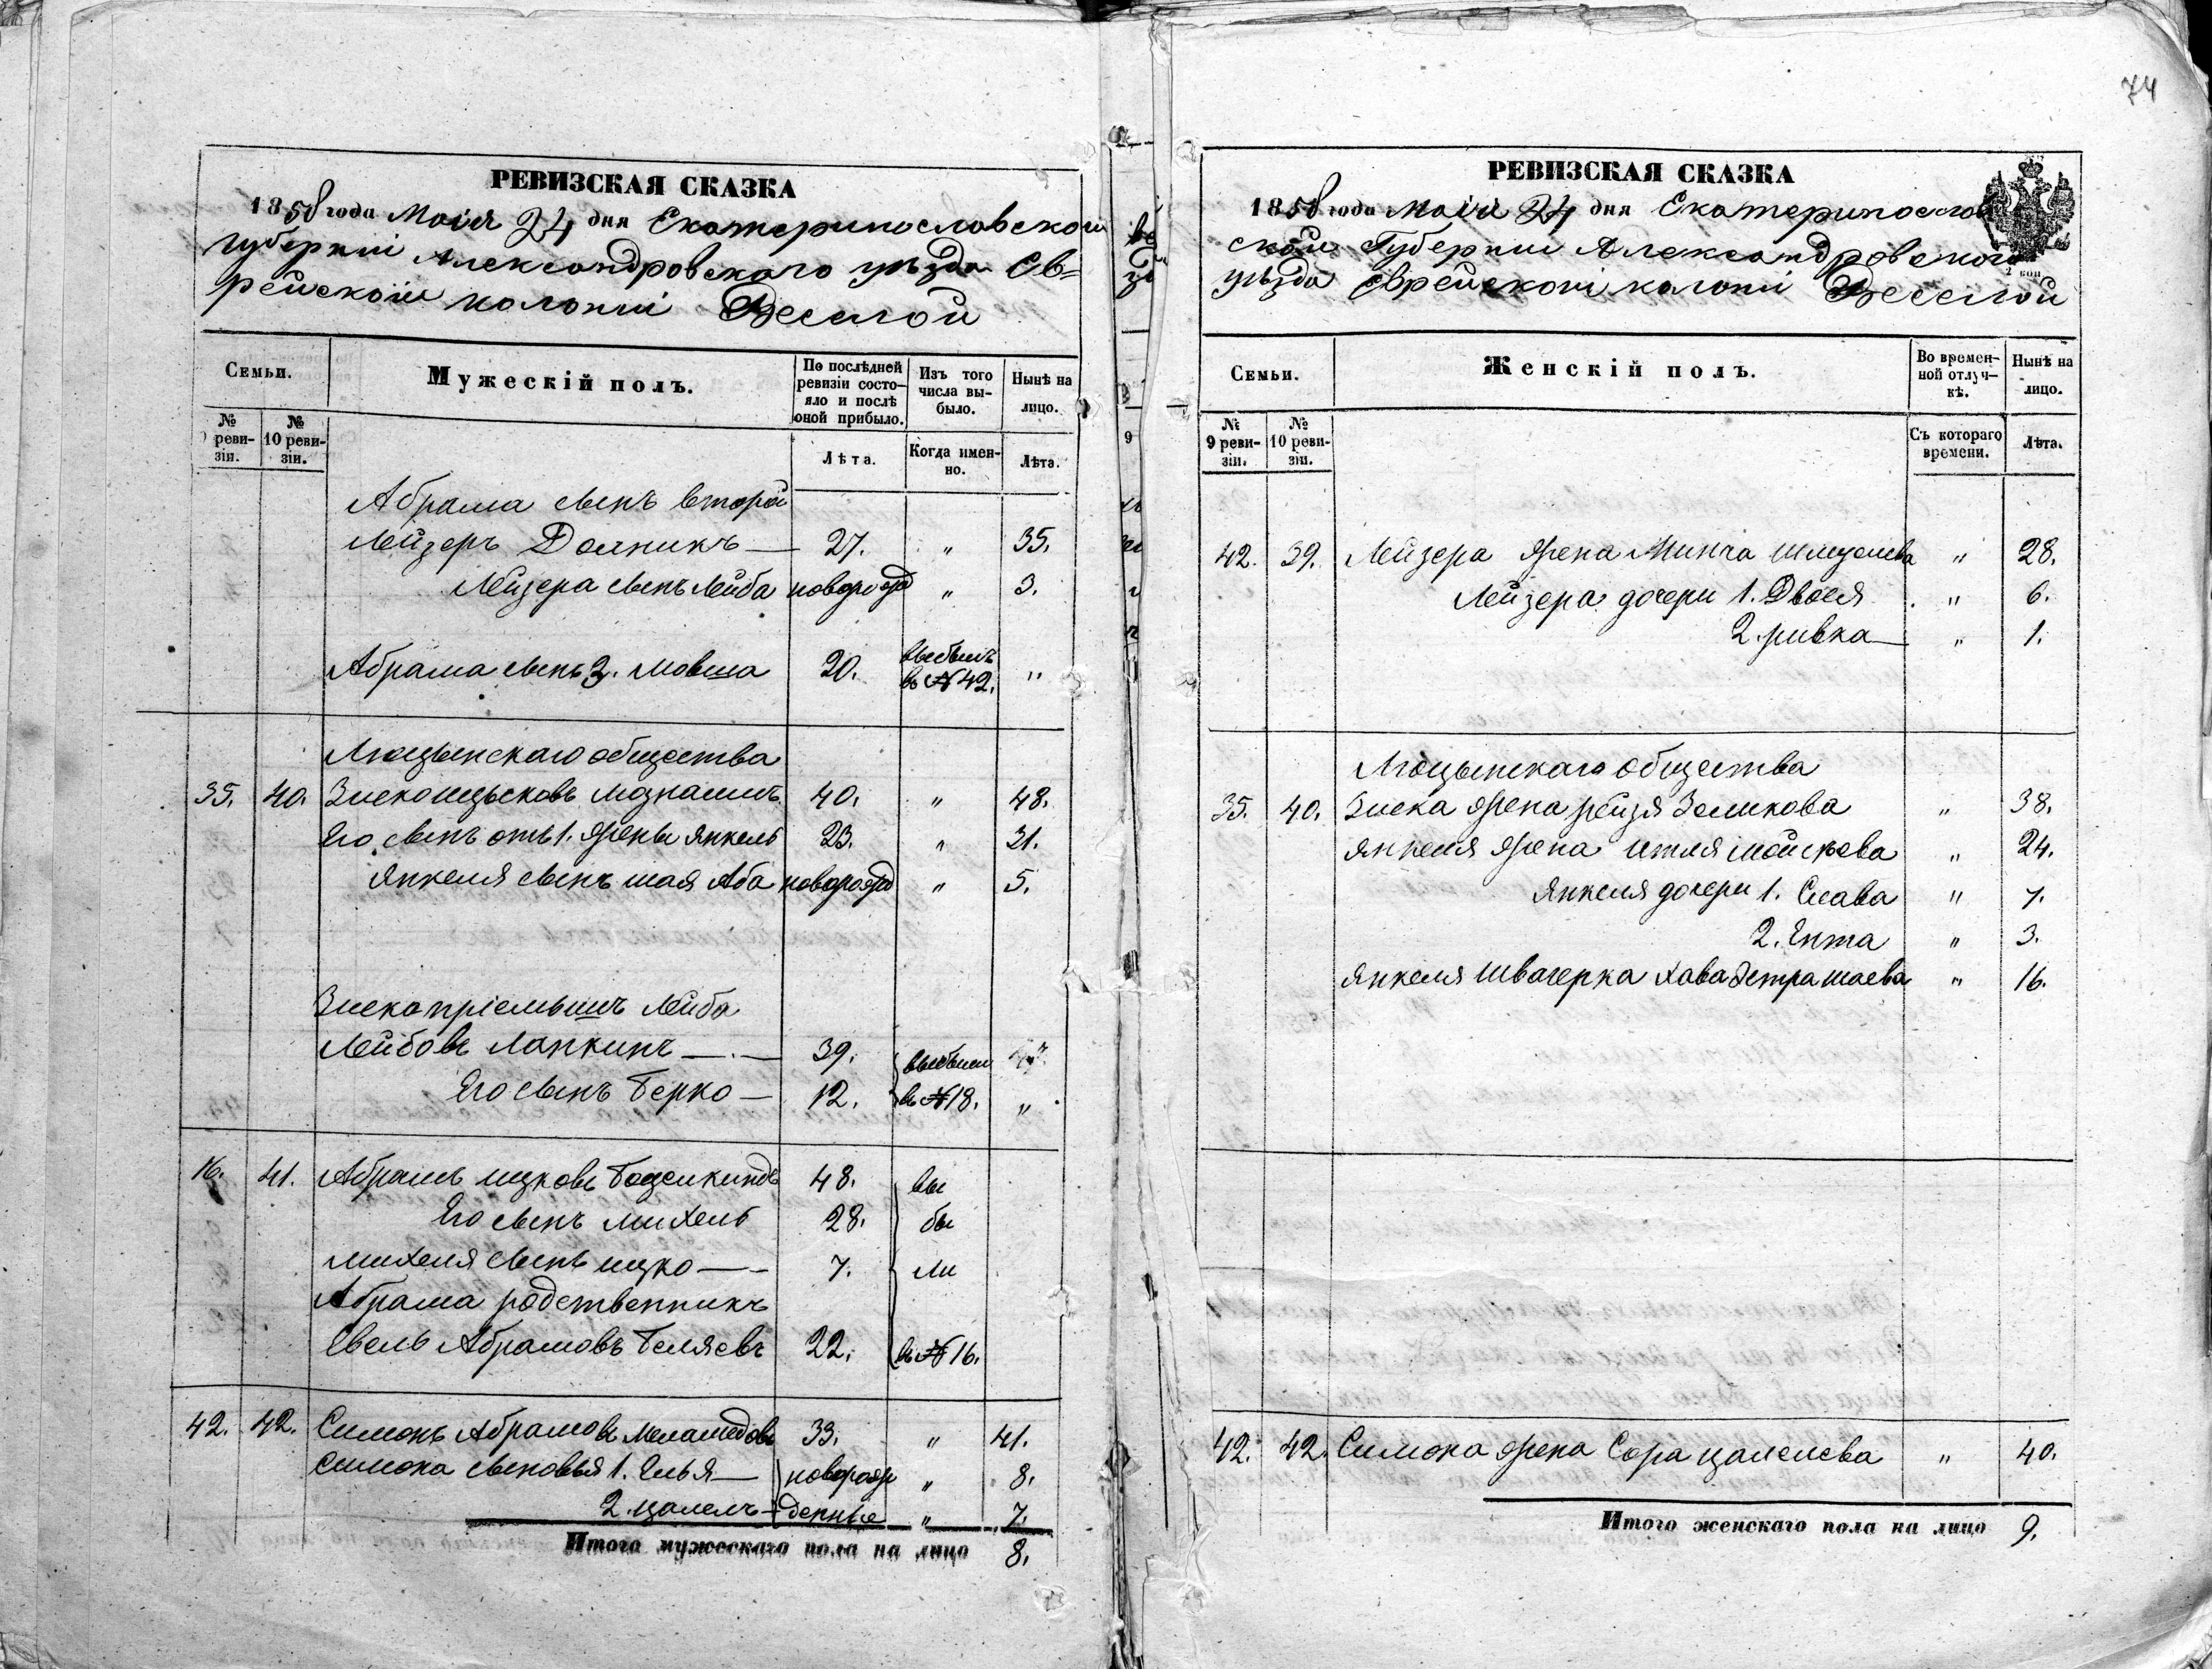 74
РЕВИЗСКАЯ СКАЗКА
1858 года Маія 24 дня Екатеринославской
Губерніи Александровскаго уѣзда Ев=
рейской колоніи Веселой
Семьи.
Мужескій полъ.
По послѣдней ревизіи состояло и послѣ оной прибыло.
Изъ того числа выбыло.
Нынѣ на лицо.
№ 9 ревизіи.
№ 10 ревизіи.
Лѣта.
Когда именно.
Лѣта.
Абрама сынъ второй
Лейзеръ Долникъ — 27. " 35.
Лейзера сынъ Лейба новорожд " 3.
Абрама сынъ 3. Мовша 20. выбылъ в № 42. "
Люцынскаго общества
35. 40. Зиско Ицысковъ 40. " 48.
Его сынъ отъ 1. жены Янкель 23. " 31.
Янкеля сынъ Шая Аба новорожд " 5.
Зиска пріемышъ Лейба
Лейбовъ Лапкинъ — 39. выбыли
Его сынъ Берко — 12. в № 18. "
16. 41. Абрамъ Ицковъ 48. вы
Его сынъ Михель 28. бы
Михеля сынъ Ицко — 7. ли
Абрама родственникъ
Евель Абрамовъ Беляевъ 22. в № 16.
42. 42. Симонъ Абрамовъ Меламедовъ 33. " 41.
Симона сыновья 1. Елья — новорож " 8.
2. Цалелъ — денные " 7.
Итого мужескаго пола на лицо 8.
РЕВИЗСКАЯ СКАЗКА
1858 года Маія 24 дня Екатеринослав
ской Губерніи Александровскаго
уѣзда Еврейской колоніи Веселой
2 коп
Семьи.
Женскій полъ.
Во временной отлучкѣ.
Нынѣ на лицо.
№ 9 ревизіи.
№ 10 ревизіи.
Съ котораго времени.
Лѣта.
42. 39. Лейзера жена Минча " 28.
Лейзера дочери 1. Двося " 6.
2. Ривка — " 1.
Люцынскаго общества
35. 40. Зиска жена Рейзя Зеликова " 38.
Янкеля жена Итля " 24.
Янкеля дочери 1. Слава " 7.
2. Ента " 3.
Янкеля швагерка Хава Шаева " 16.
42. 42. Симона жена Сора Цалелева " 40.
Итого женскаго пола на лицо 9.